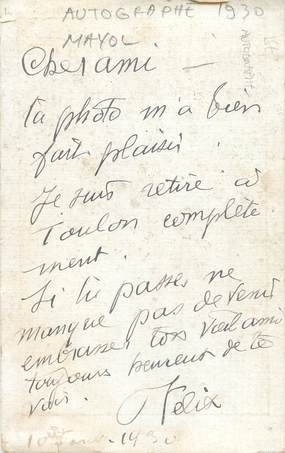 AUTOGRAPHE 1930
MAYOL
AUTOGRAPHE
Cher ami —
ta photo m'a bien
fait plaisir.
Je suis retiré à
Toulon complète
ment.
Si tu passes ne
manque pas de venir
embrasser ton vieil ami
toujours heureux de te
voir.
Felix
1930